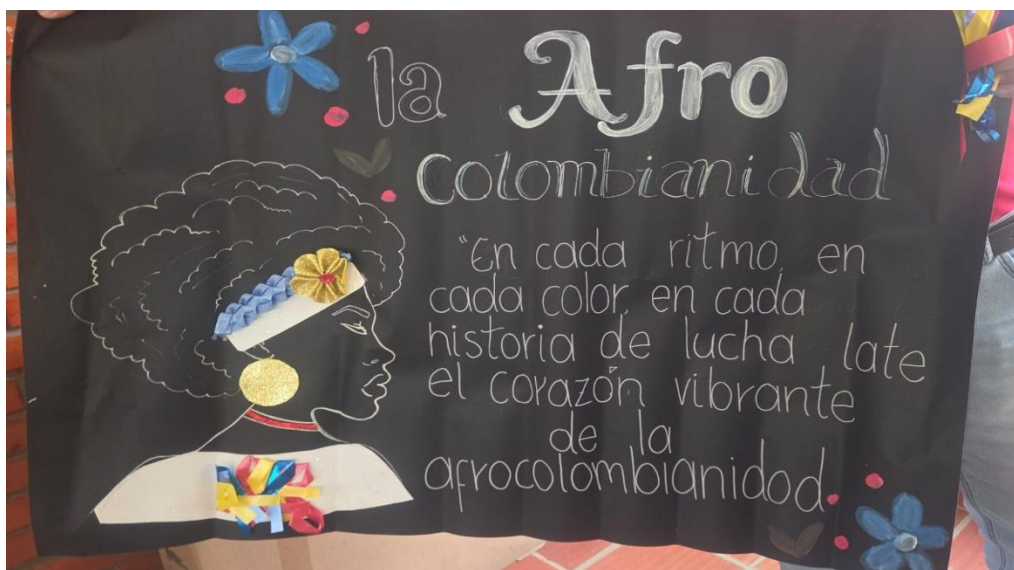 la Afro
Colombianidad
"En cada ritmo, en
cada color, en cada
historia de lucha late
el corazón vibrante
de la
afrocolombianidad